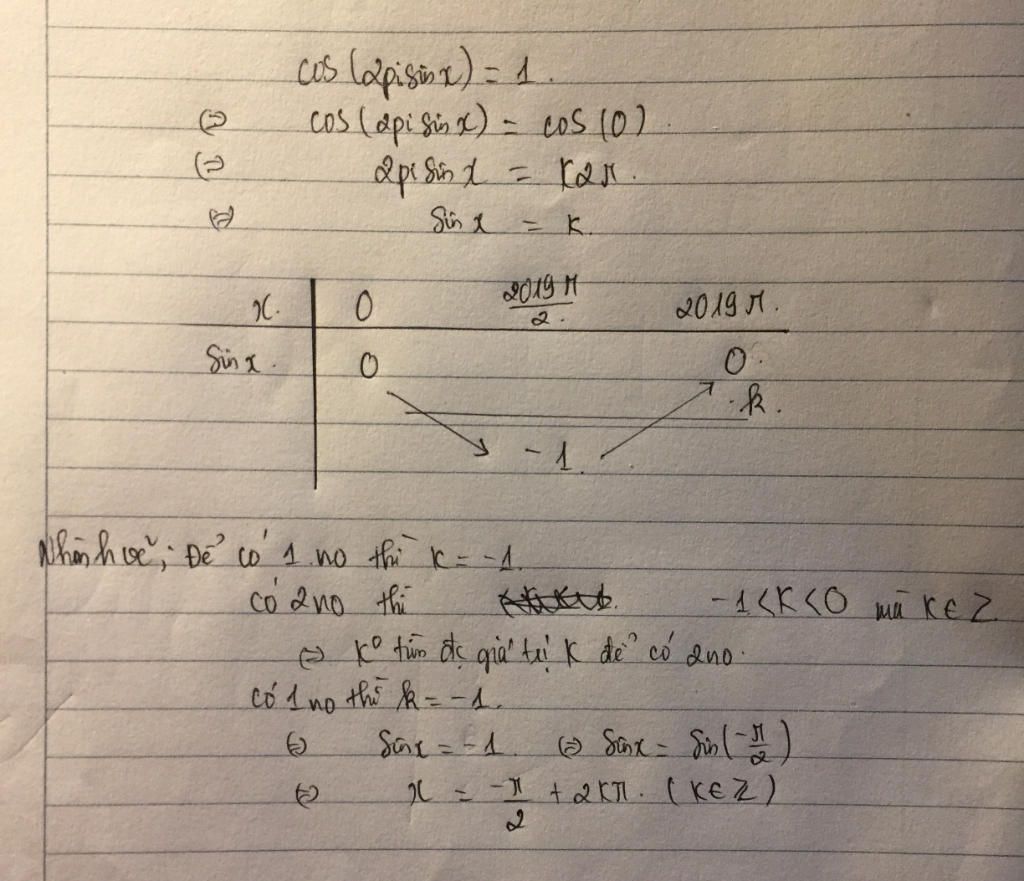 cos(2pisinx) = 1.
⇔ cos(2pisinx) = cos(0).
⇔ 2pisinx = K2π.
⇔ Sinx = K.
x. 0 2019π/2. 2019π.
Sinx. 0 0.
k.
-1.
Để có 1 no thì K = -1.
có 2no thì -1<K<0 mà K∈Z
⇔ K° tìm đc giá trị K để có 2no.
có 1no thì k = -1.
⇔ Sinx = -1. ⇔ Sinx = Sin(-π/2)
⇔ x = -π/2 + 2Kπ. (K∈Z)